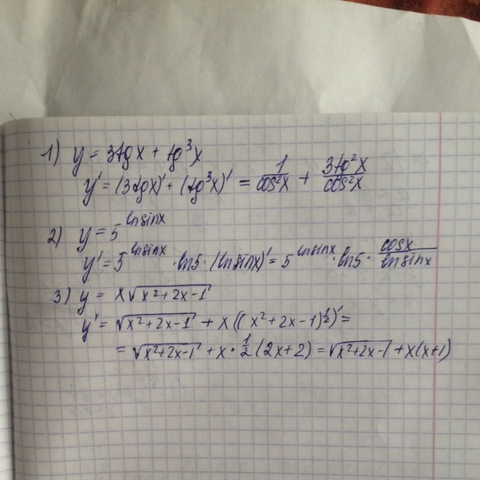 1) y = 3tgx + tg³x
y' = (3tgx)' + (tg³x)' = 1/cos²x + 3tg²x/cos²x
2) y = 5^lnsinx
y' = 5^lnsinx · ln5 · (lnsinx)' = 5^lnsinx · ln5 · cosx/lnsinx
3) y = x√(x²+2x-1)
y' = √(x²+2x-1) + x((x²+2x-1)^½)' =
= √(x²+2x-1) + x · ½(2x+2) = √(x²+2x-1) + x(x+1)